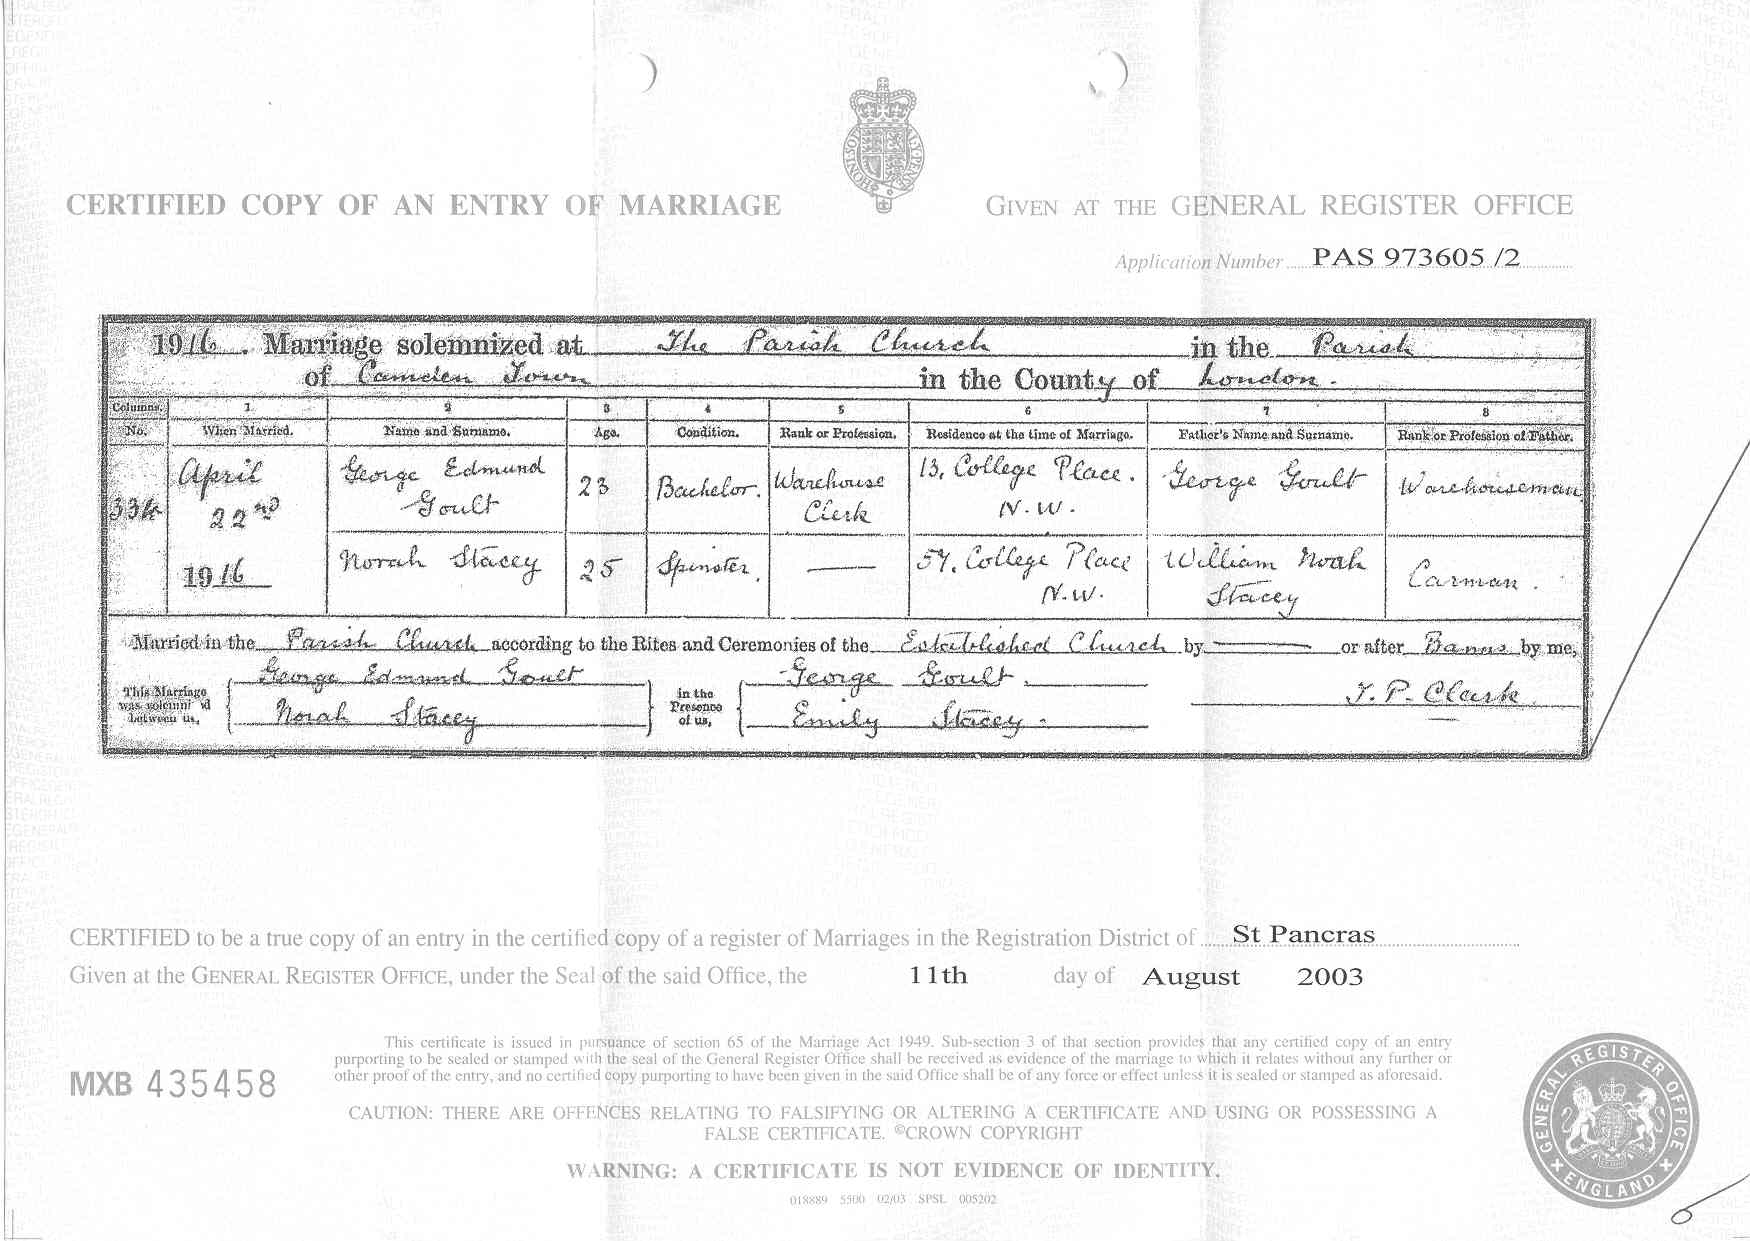 CERTIFIED COPY OF AN ENTRY OF MARRIAGE
GIVEN AT THE GENERAL REGISTER OFFICE
Application Number PAS 973605 /2
1916. Marriage solemnized at The Parish Church in the Parish
of Camden Town in the County of London.
Columns. 1 2 3 4 5 6 7 8
No. When Married. Name and Surname. Age. Condition. Rank or Profession. Residence at the time of Marriage. Father's Name and Surname. Rank or Profession of Father.
334 April 22nd 1916
George Edmund Goult 23 Bachelor. Warehouse Clerk 13, College Place. N.W. George Goult Warehouseman
Norah Stacey 25 Spinster. — 57, College Place N.W. William Noah Stacey Carman.
Married in the Parish Church according to the Rites and Ceremonies of the Established Church by — or after Banns by me,
This Marriage was solemnized between us,
George Edmund Goult
Norah Stacey
in the Presence of us,
George Goult.
Emily Stacey.
J. P. Clark.
CERTIFIED to be a true copy of an entry in the certified copy of a register of Marriages in the Registration District of St Pancras
Given at the GENERAL REGISTER OFFICE, under the Seal of the said Office, the 11th day of August 2003
This certificate is issued in pursuance of section 65 of the Marriage Act 1949. Sub-section 3 of that section provides that any certified copy of an entry
purporting to be sealed or stamped with the seal of the General Register Office shall be received as evidence of the marriage to which it relates without any further or
other proof of the entry, and no certified copy purporting to have been given in the said Office shall be of any force or effect unless it is sealed or stamped as aforesaid.
MXB 435458
CAUTION: THERE ARE OFFENCES RELATING TO FALSIFYING OR ALTERING A CERTIFICATE AND USING OR POSSESSING A
FALSE CERTIFICATE. ©CROWN COPYRIGHT
WARNING: A CERTIFICATE IS NOT EVIDENCE OF IDENTITY.
018889 5500 02/03 SPSL 005202
GENERAL REGISTER OFFICE
ENGLAND